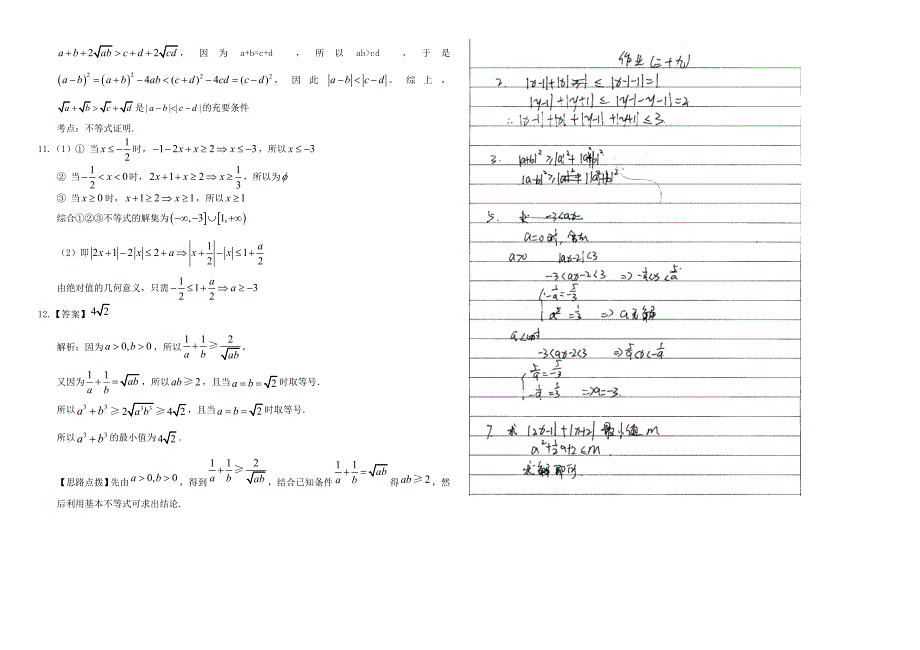 a+b+2√ab>c+d+2√cd，因为 a+b=c+d ，所以 ab>cd ，于是
(a−b)²=(a+b)²−4ab<(c+d)²−4cd=(c−d)²，因此|a−b|<|c−d|。综上，
√a+√b>√c+√d是|a−b|<|c−d|的充要条件
考点：不等式证明.
11.（1）① 当x≤−1/2时，−1−2x+x≥2⇒x≤−3，所以x≤−3
② 当−1/2<x<0时，2x+1+x≥2⇒x≥1/3，所以为ϕ
③ 当x≥0时，x+1≥2⇒x≥1，所以x≥1
综合①②③不等式的解集为(−∞,−3]∪[1,+∞)
（2）即|2x+1|−2|x|≤2+a⇒|x+1/2|−|x|≤1+a/2
由绝对值的几何意义，只需−1/2≤1+a/2⇒a≥−3
12.【答案】4√2
解析：因为a>0,b>0，所以1/a+1/b≥2/√ab，
又因为1/a+1/b=√ab，所以ab≥2，且当a=b=√2时取等号.
所以a³+b³≥2√a³b³≥4√2，且当a=b=√2时取等号.
所以a³+b³的最小值为4√2.
【思路点拨】先由a>0,b>0，得到1/a+1/b≥2/√ab，结合已知条件1/a+1/b=√ab得ab≥2，然
后利用基本不等式可求出结论.
作业(三十九)
2. |x-1|+|x| ≤|x-1-1|=1
|y-1|+|y+1|≤|y-1-y-1|=2
∴|x-1|+|x|+|y-1|+|y+1|≤3.
3.
5.
a=0时,舍去
a>0 |ax-2|<3
-3<ax-2<3 ⇒ -1/a<x<5/a
⇒a无解
-3<ax-2<3 ⇒5/a<x<-1/a
⇒a=-3.
7 求|2x-1|+|x+2|最小值m
a²+1/2a+2≤m
求解即可.